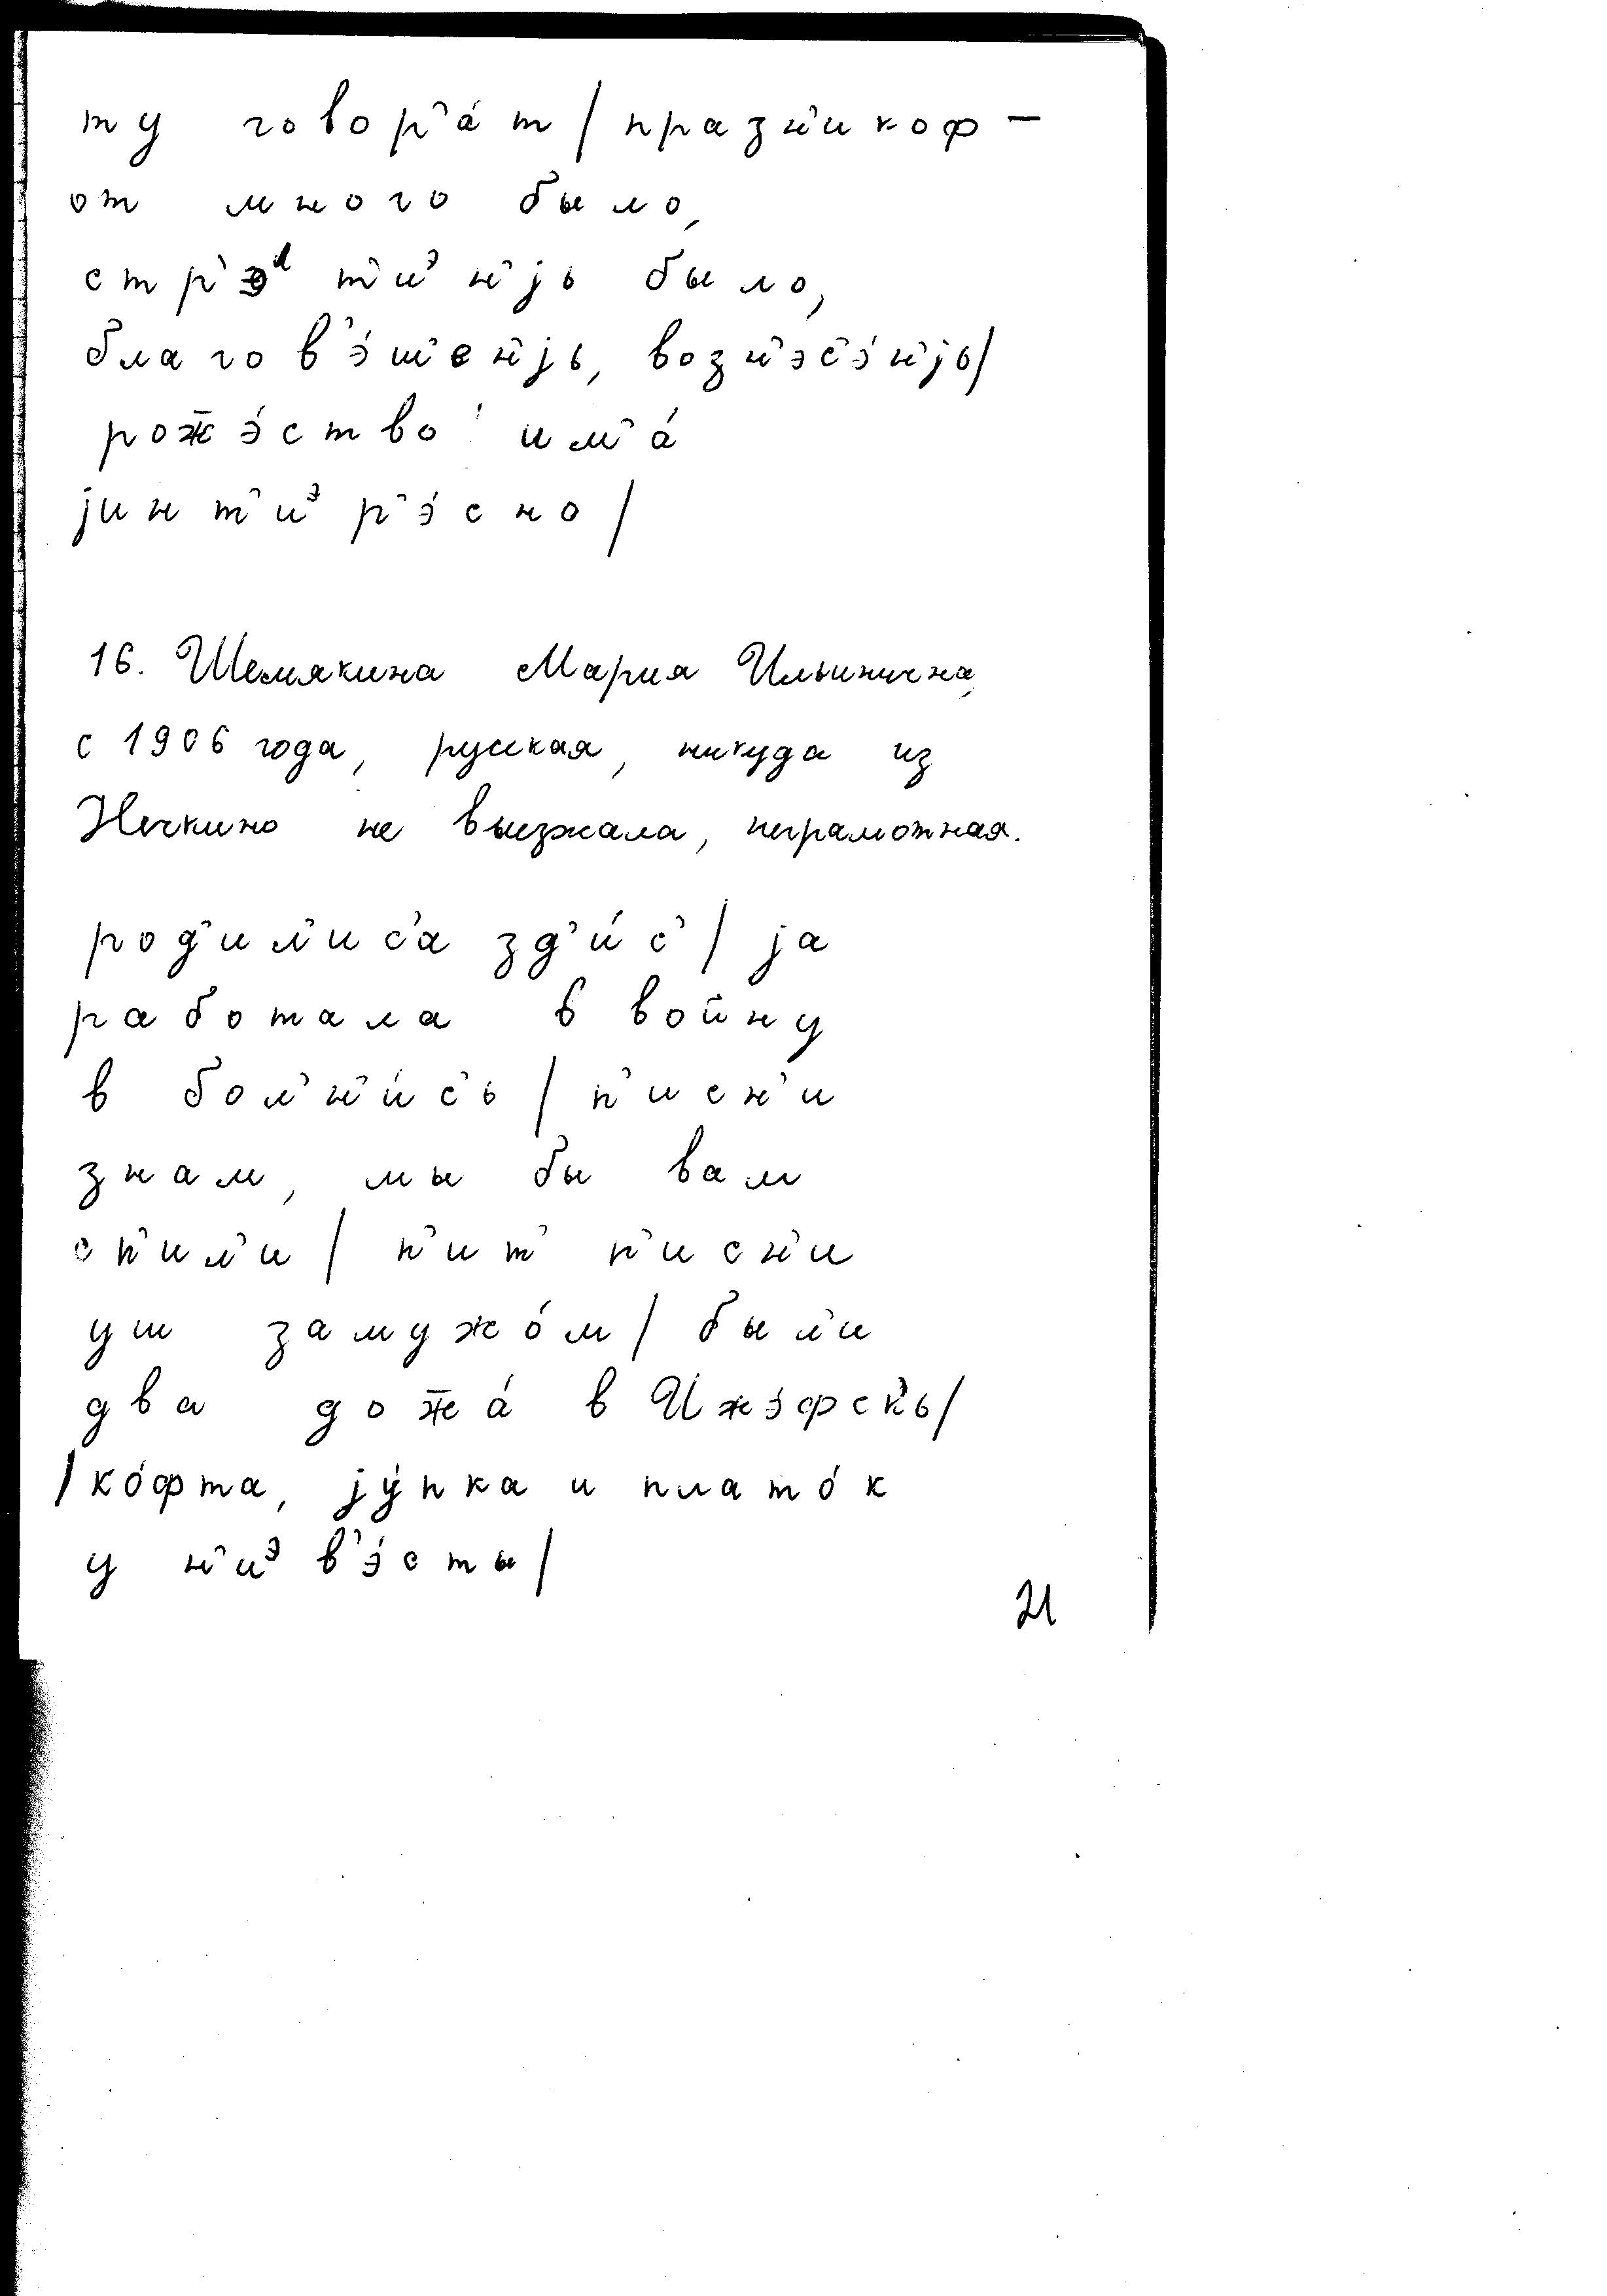 ту говор'а́т / празн'икоф -
от много было,
стр'э́ т'иэн'jь было,
благов'э́ш'ен'jь, возн'эс'э́н'jь /
рож̄э́ство им'а́
jинт'иэр'э́сно /
16. Шемякина Мария Ильинична,
с 1906 года, русская, никуда из
Нечкино не выезжала, неграмотная.
род'ил'ис'а зд'и́с' / jа
работала в войну
в бол'н'и́с'ь / п'исн'и
знам, мы бы вам
сп'ил'и / п'ит' п'исн'и
уш замужо́м / был'и
два дож̄а́ в Ижэ́фск'ь /
/ ко́фта, jу́пка и плато́к
у н'иэв'э́сты /
21